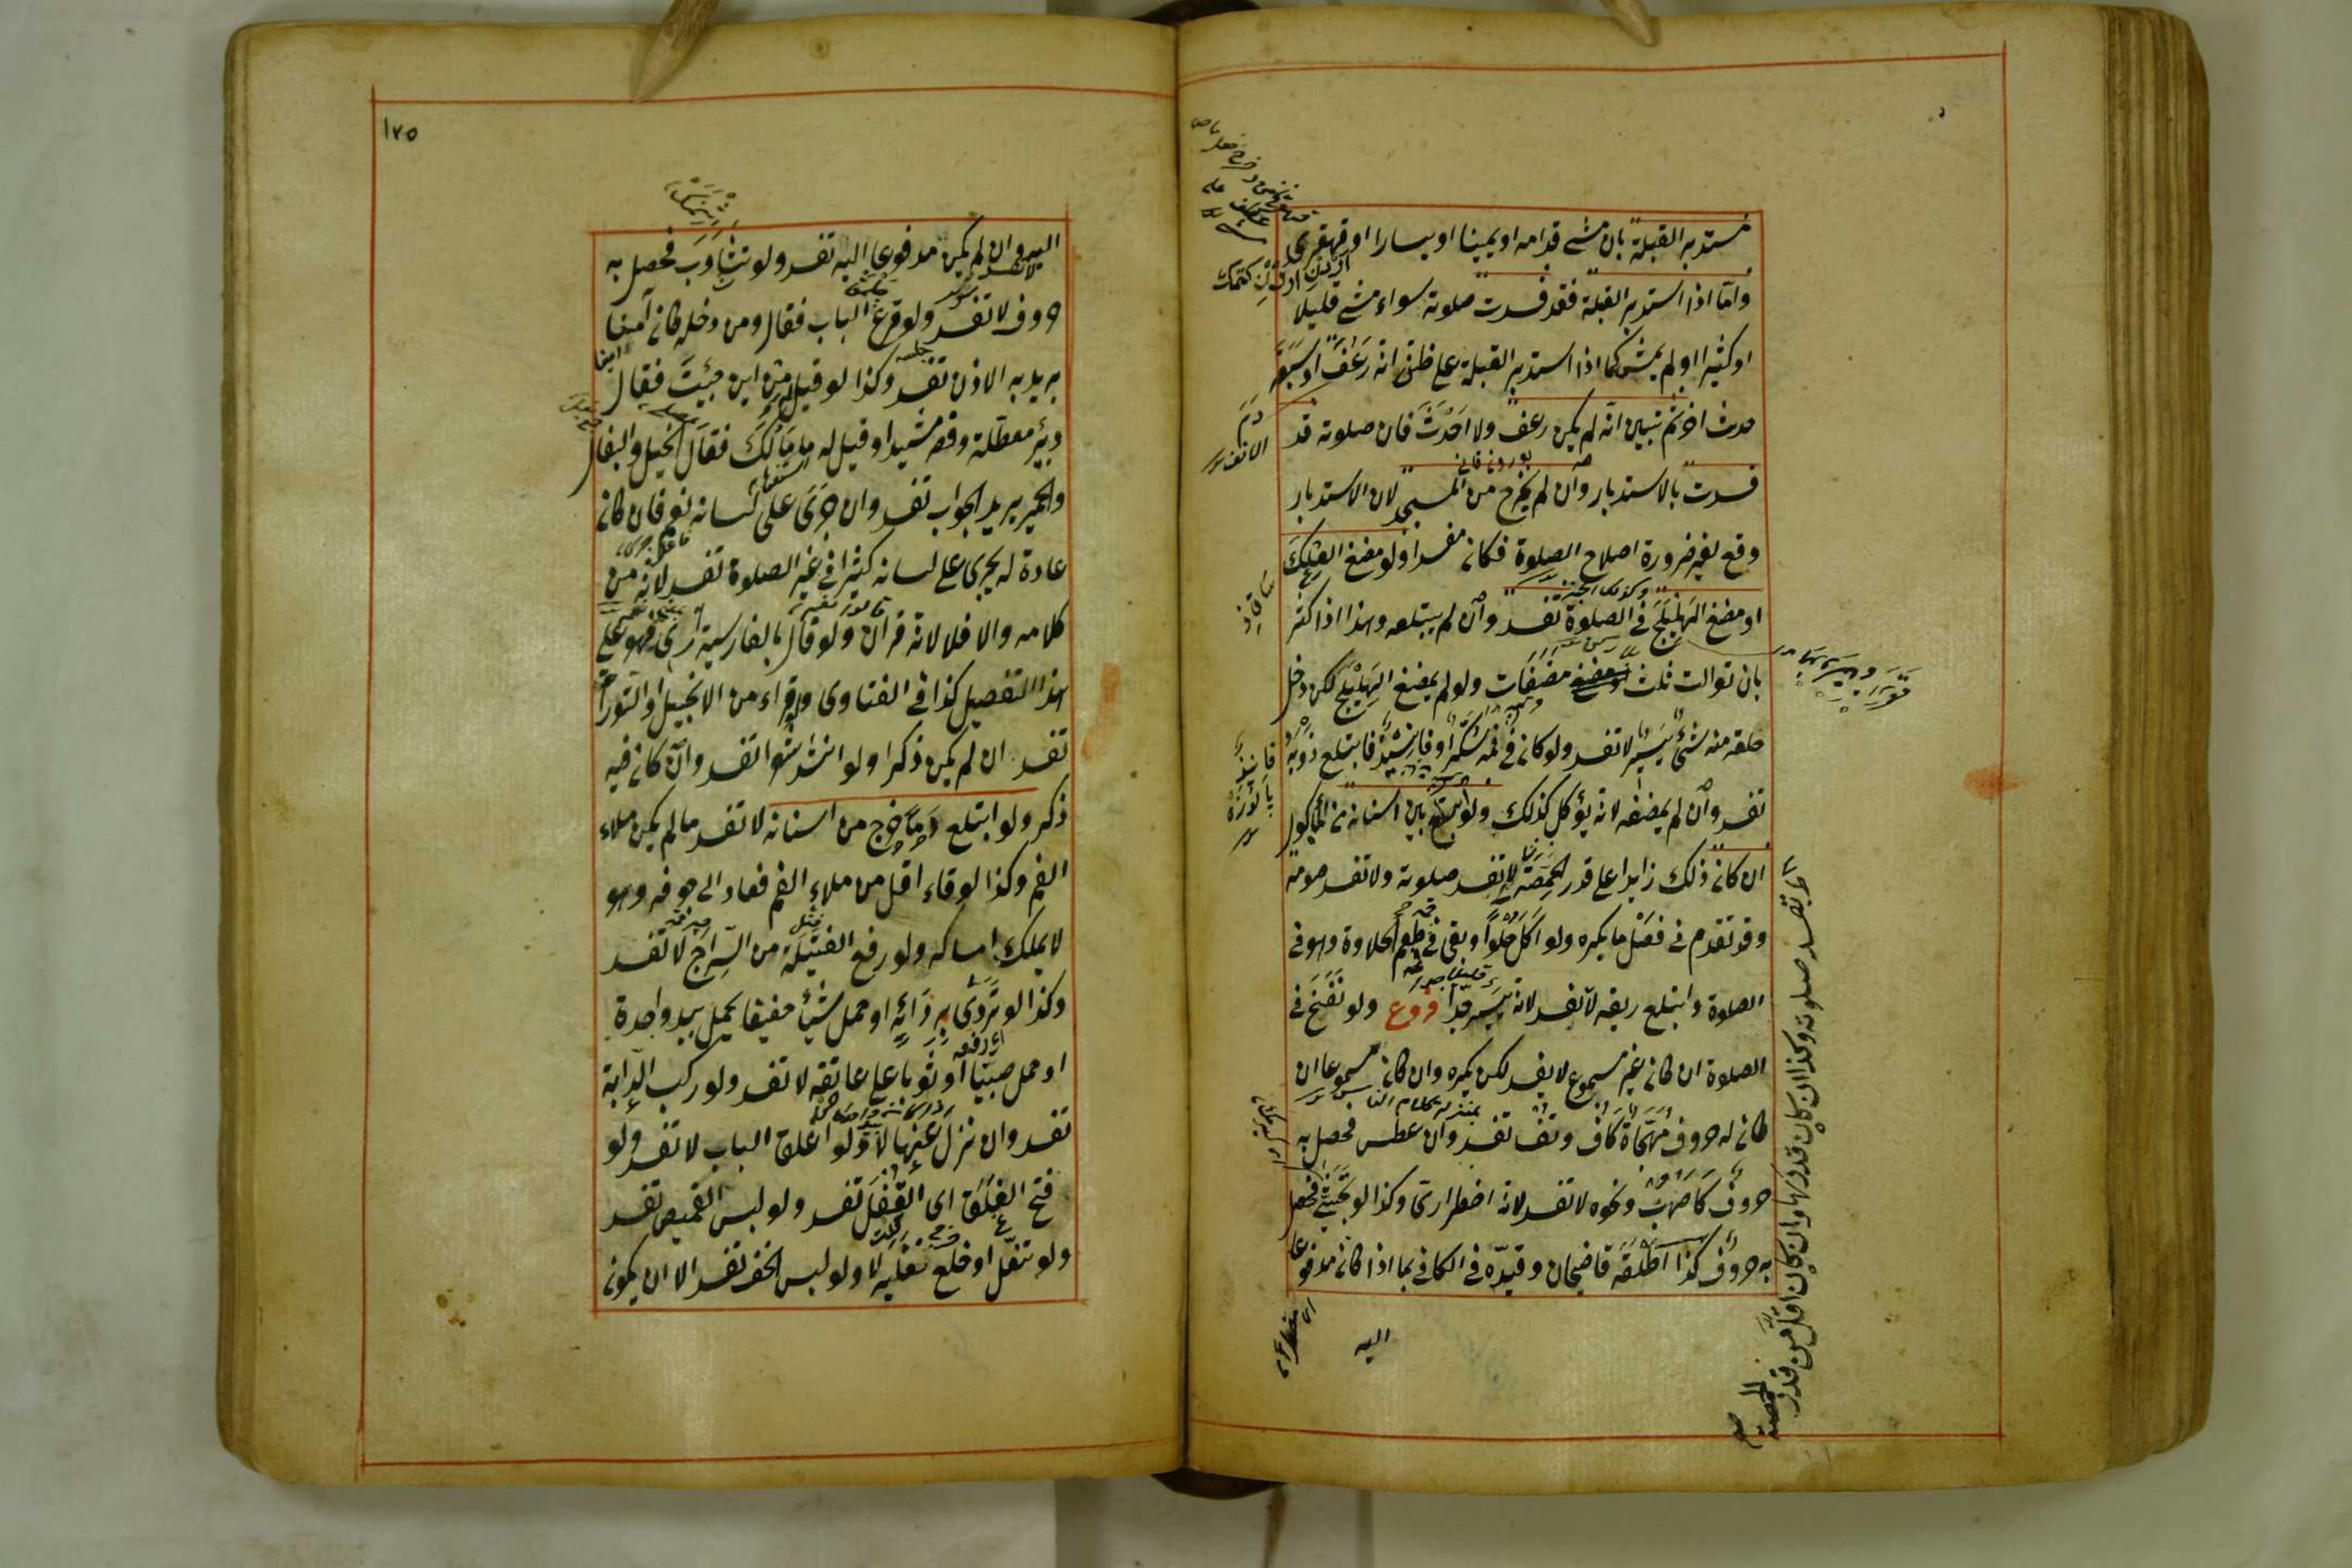 مستدبر القبلة بان مشى قدامه او يمينا او يسارا او قهقرى
واما اذا استدبر القبلة فقد فسدت صلوته سواء مشى قليلا
او كثيرا او لم يمش كما اذا استدبر القبلة على ظن انه رعف او سبقه
حدث اخر ثم تبين انه لم يكن رعف ولا احدث فان صلوته قد
فسدت بالاستدبار وان لم يخرج من المسجد لان الاستدبار
وقع لغير ضرورة اصلاح الصلوة فكان مفسدا ولو مضغ العلك
او مضغ الهليلج في الصلوة تفسد وان لم يبتلعه وهذا اذا كثر
بان توالت ثلث مضغات ولو لم يمضغ الهليلج لكن دخل
حلقه منه شئ يسير لا تفسد ولو كان في فمه سكر او فانيذ فابتلع ذوبه
تفسد وان لم يمضغه لانه يؤكل كذلك ولو ابتلع بين اسنانه من المأكول
ان كان ذلك زايدا على قدر الحمصة تفسد صلوته ولا تفسد صومه
وقد تقدم في فصل ما يكره ولو اكل حلوا وبقي في فمه طعم الحلاوة وهو في
الصلوة وابتلع ريقه لا يفسد لانه يسير جدا فروع ولو نفخ في
الصلوة ان كان غير مسموع لا يفسد لكن يكره وان كان مسموعا ان
كان له حروف مهجاة كاف وتف تفسد وان عطس فحصل به
حروف كاصهب ونحوه لا تفسد لانه اضطراري وكذا لو تجشئ فحصل
به حروف كذا اطلقه قاضيخان وقيده في الكافي بما اذا كان مدفوعا
اليه
دم
الانف
فانيذ
لا تفسد صلوته وكذا ان كان قدرها وان كان اقل من قدر
الحمصة
١٧٥
اليه وان لم يكن مدفوعا اليه تفسد ولو تثاوب فحصل به
حروف لا تفسد ولو قرع الباب فقال ومن دخله كان آمنا
يريد به الاذن تفسد وكذا لو قيل له من اين جئت فقال
وبئر معطلة وقصر مشيد او قيل له ما مالك فقال الخيل والبغال
والحمير يريد الجواب تفسد وان جرى على لسانه نعم فان كان
عادة له يجري على لسانه كثيرا في غير الصلوة تفسد لانه من
كلامه والا فلا لانه قرآن ولو قال بالفارسية آرى فهو على
هذا التفصيل كذا في الفتاوى ولو قراء من الانجيل او التوراة
تفسد ان لم يكن ذكرا ولو انشد شعرا تفسد وان كان فيه
ذكر ولو ابتلع دما خرج من اسنانه لا تفسد ما لم يكن ملاء
الفم وكذا لو قاء اقل من ملاء الفم فعاد الى جوفه وهو
لا يملك امساكه ولو رفع الفتيلة من السراج لا تفسد
وكذا لو تردى بردائه او حمل شيأ خفيفا يحمل بيد واحدة
او حمل صبيا او ثوبا على عاتقه لا تفسد ولو ركب الدابة
تفسد وان نزل عنها لا ولو اغلق الباب لا تفسد ولو
فتح الغلق اى القفل تفسد ولو لبس القميص تفسد
ولو تنعل او خلع نعليه لا ولو لبس الخف تفسد الا ان يكون